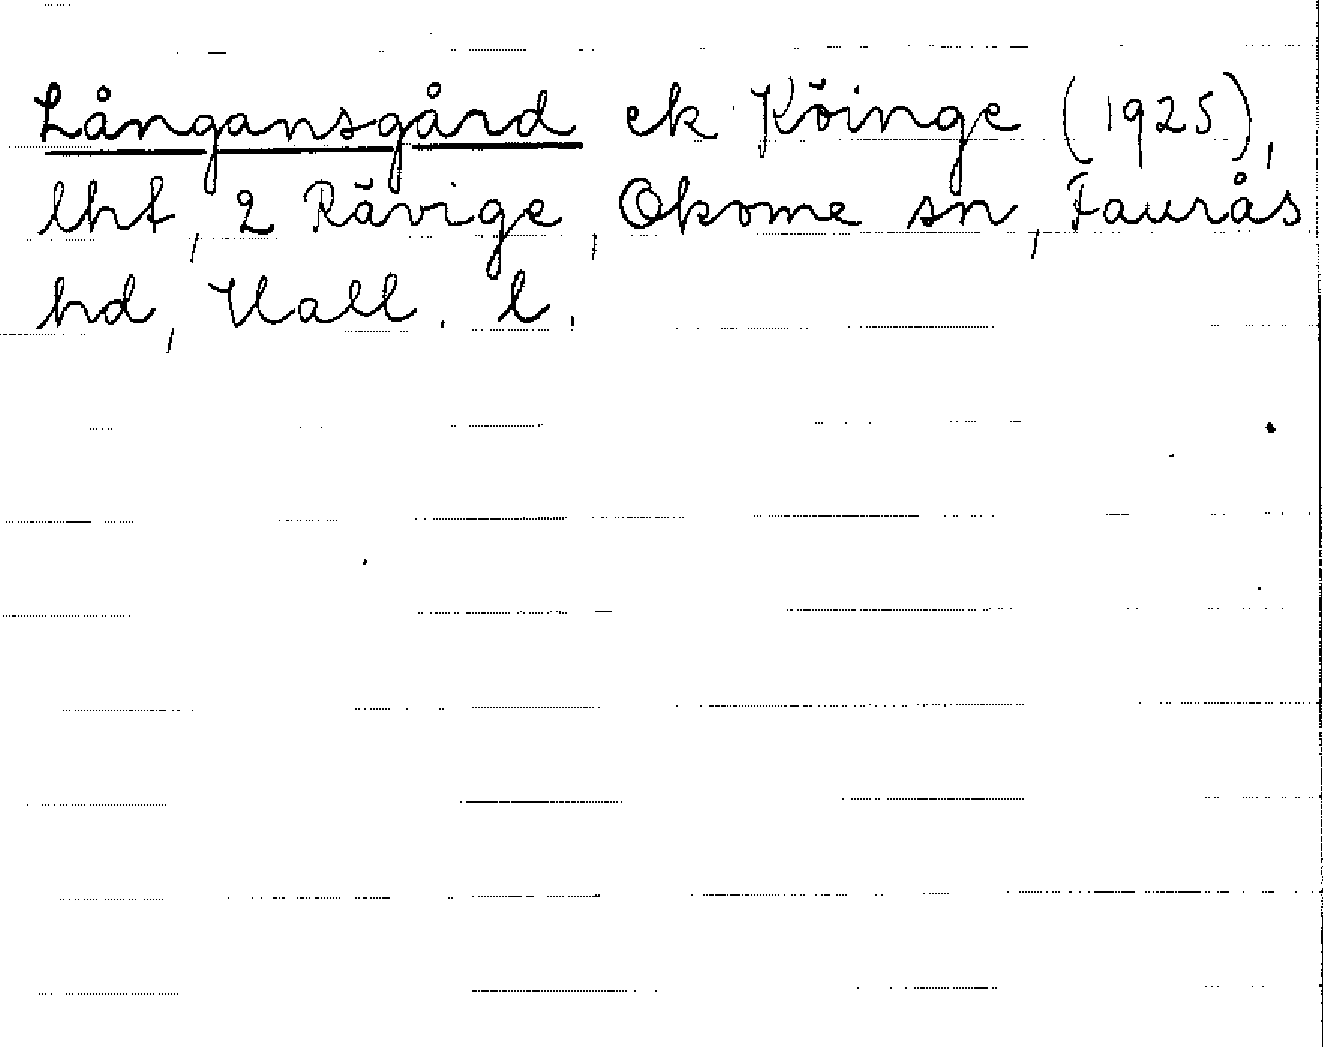 Långansgård ek Köinge (1925),
lht, 2 Rävige, Okome sn, Faurås
hd, Hall. l.